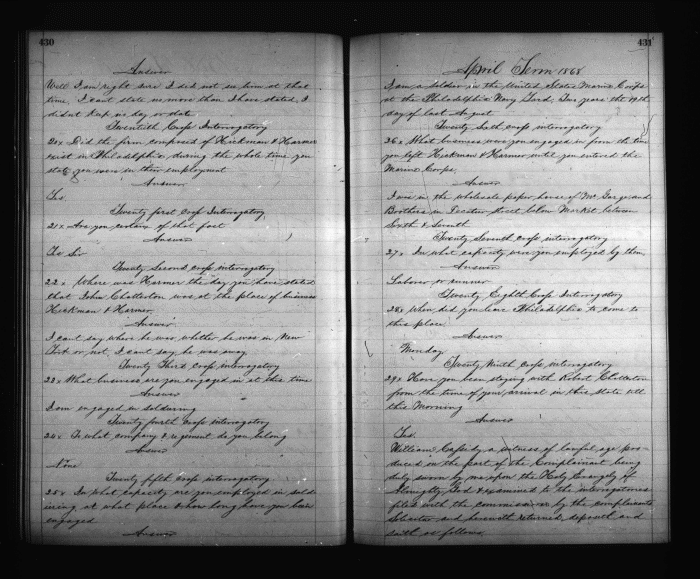 430
Answer
Well I am right sure I did not see him at that
time, I cant state no more than I have stated, I
didnt keep no day or date
Twentieth Cross Interrogatory
20x Did the firm composed of Hickman & Harmer
exist in Philadelphia during the whole time you
state you were in their employment
Answer
Yes
Twenty first Cross Interrogatory
21x Are you certain of that fact
Answer
Yes Sir
Twenty Second cross interrogatory
22x Where was Harmer the day you have stated
that John Chatterton was at the place of business
Hickman & Harmer
Answer
I cant say where he was, whether he was in New
York or not, I cant say he was away
Twenty Third cross interrogatory
23x What business are you engaged in at this time
Answer
I am engaged in soldiering
Twenty fourth cross interrogatory
24x To what company & regiment do you belong
Answer
None
Twenty fifth cross interrogatory
25x In what capacity are you employed in sold
iering, at what place & how long have you been
engaged
Answer
431
April Term 1868
I am a soldier in the United States Marine Corps
at the Philadelphia Navy Yard, two years the 19th
day of last August
Twenty Sixth cross interrogatory
26x What business were you engaged in from the time
you left Hickman & Harmer until you entered the
Marine Corps
Answer
I was in the wholesale paper house of Mr and
Brothers in Decatur street below Market between
Sixth & Seventh
Twenty Seventh cross interrogatory
27x In what capacity were you employed by them
Answer
Laborer or
Twenty Eighth Cross Interrogatory
28x When did you leave Philadelphia to come to
this place
Answer
Monday
Twenty Ninth cross interrogatory
29x Have you been staying with Robert Chatterton
from the time of your arrival in this state till
this Morning
Answer
Yes.
William Cassidy a witness of lawful age pro-
duced in the part of the Complainant being
duly sworn by me upon the Holy Evangely of
Almighty God & examined to the interrogatories
filed with the commissioner by the complainants
Solicitor and herewith returned, deposeth and
saith as follows